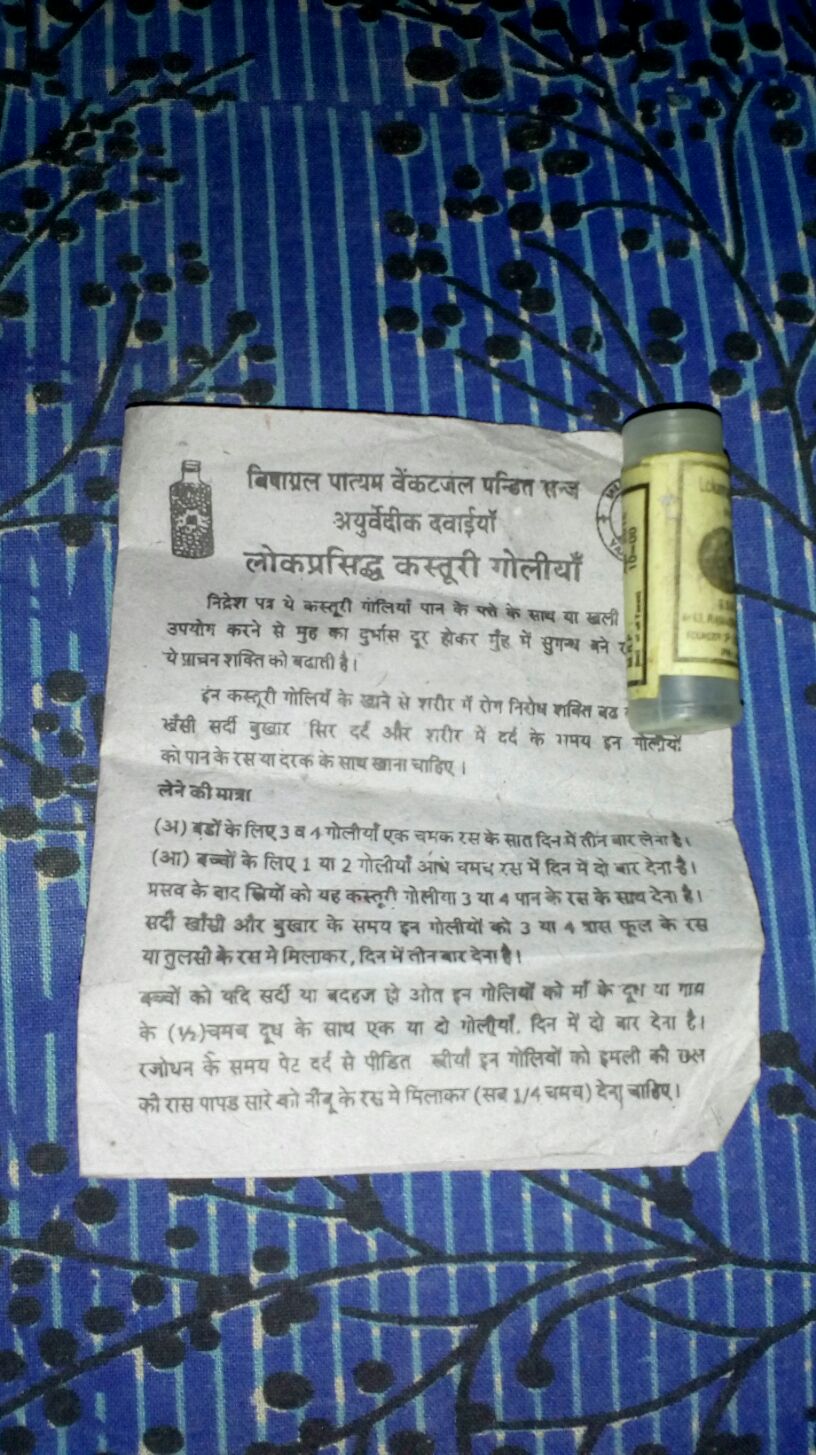 बिषाग्रल पात्यम वेंकटजल पन्डित सन्ज
अयुर्वेदीक दवाईयाँ
लोकप्रसिद्ध कस्तूरी गोलीयाँ
निद्रेश पत्र ये कस्तूरी गोलियाँ पान के पत्ते के साथ या खली
उपयोग करने से मुह का दुर्भास दूर होकर मुँह में सुगन्ध बने
ये प्राचन शक्ति को बढाती है।
इन कस्तूरी गोलियँ के खाने से शरीर में रोग निरोध शक्ति बढ
खाँसी सर्दी बुखार सिर दर्द और शरीर में दर्द के समय इन गोलीयों
को पान के रस या दरक के साथ खाना चाहिए।
लेने की मात्रा
(अ) बडों के लिए 3 व 4 गोलीयाँ एक चमक रस के सात दिन में तीन बार लेना है।
(आ) बच्चों के लिए 1 या 2 गोलीयाँ आधे चमच रस में दिन में दो बार देना है।
प्रसव के बाद स्त्रियों को यह कस्तूरी गोलीया 3 या 4 पान के रस के साथ देना है।
सर्दी खाँसी और बुखार के समय इन गोलीयों को 3 या 4 त्रास फूल के रस
या तुलसी के रस मे मिलाकर, दिन में तीन बार देना है।
बच्चों को यदि सर्दी या बदहज हो ओत इन गोलियों को माँ के दूध या गाय
के (½)चमच दूध के साथ एक या दो गोलीयाँ. दिन में दो बार देना है।
रजोधन के समय पेट दर्द से पीडित स्त्रीयाँ इन गोलियों को इमली की छल
की रास पापड सारे को नीबू के रस मे मिलाकर (सब 1/4 चमच) देना चाहिए।
10-00